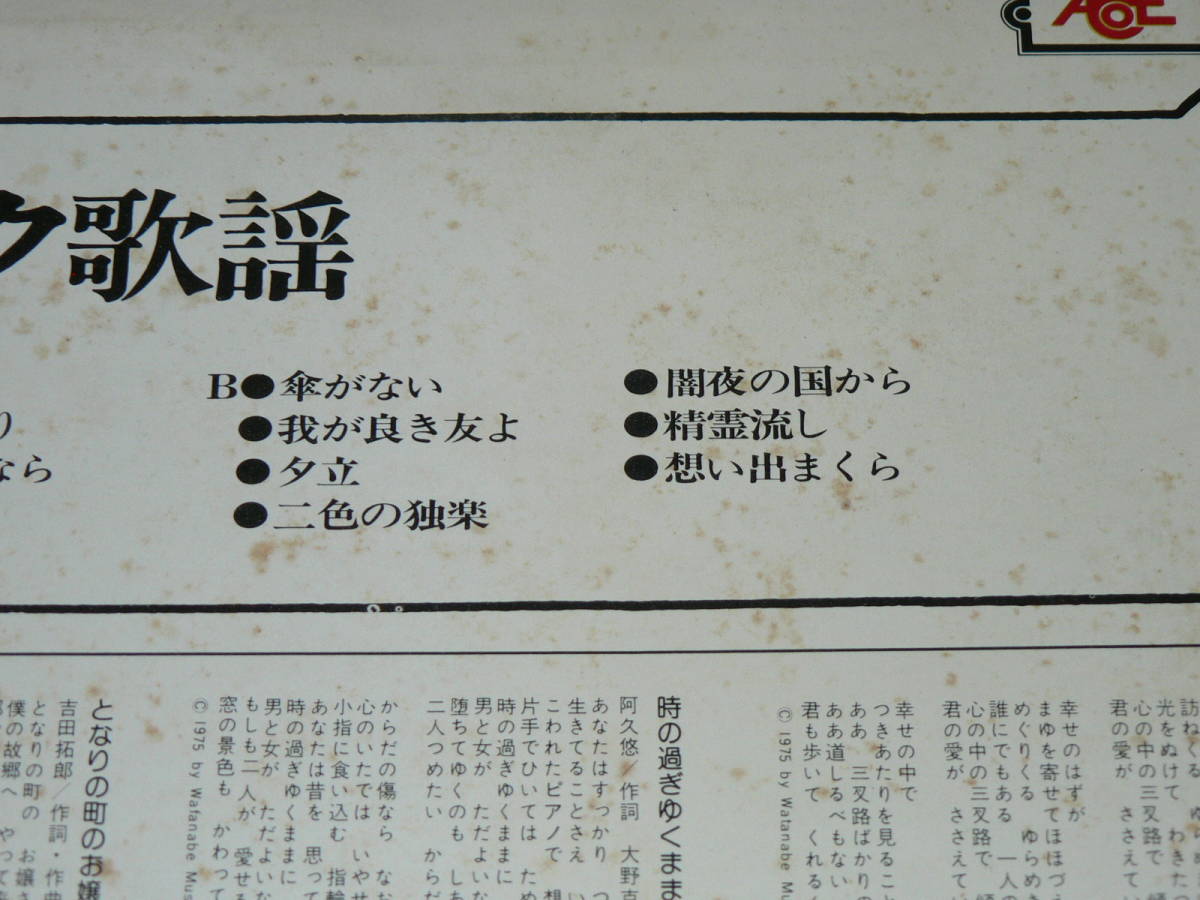 ACE
ク歌謡
り
なら
B●傘がない
●我が良き友よ
●夕立
●二色の独楽
●闇夜の国から
●精霊流し
●想い出まくら
光をぬけて わきたつ
心の中の三叉路で
君の愛が ささえてい
幸せのはずが
まゆを寄せてほほづえ
めぐりくる ゆらめき
誰にでもある 一人の
心の中の三叉路で
君の愛が ささえて
幸せの中で
つきあたりを見ること
ああ 三叉路ばかりの
ああ道しるべもない
君も歩いて くれるく
© 1975 by Watanabe Mu
時の過ぎゆくまま
阿久悠／作詞 大野克
あなたはすっかり つ
生きてることさえ い
こわれたピアノで 想
片手でひいては ため
時の過ぎゆくままに
男と女が ただよいな
堕ちてゆくのも しあ
二人つめたい からだ
からだの傷なら なお
心のいたでは いやせ
小指に食い込む 指輪
あなたは昔を 思って
時の過ぎゆくままに
男と女が ただよいな
もしも二人が 愛せる
窓の景色も かわって
© 1975 by Watanabe Mus
となりの町のお嬢
吉田拓郎／作詞・作曲
となりの町の お嬢さ
僕の故郷へ やって来